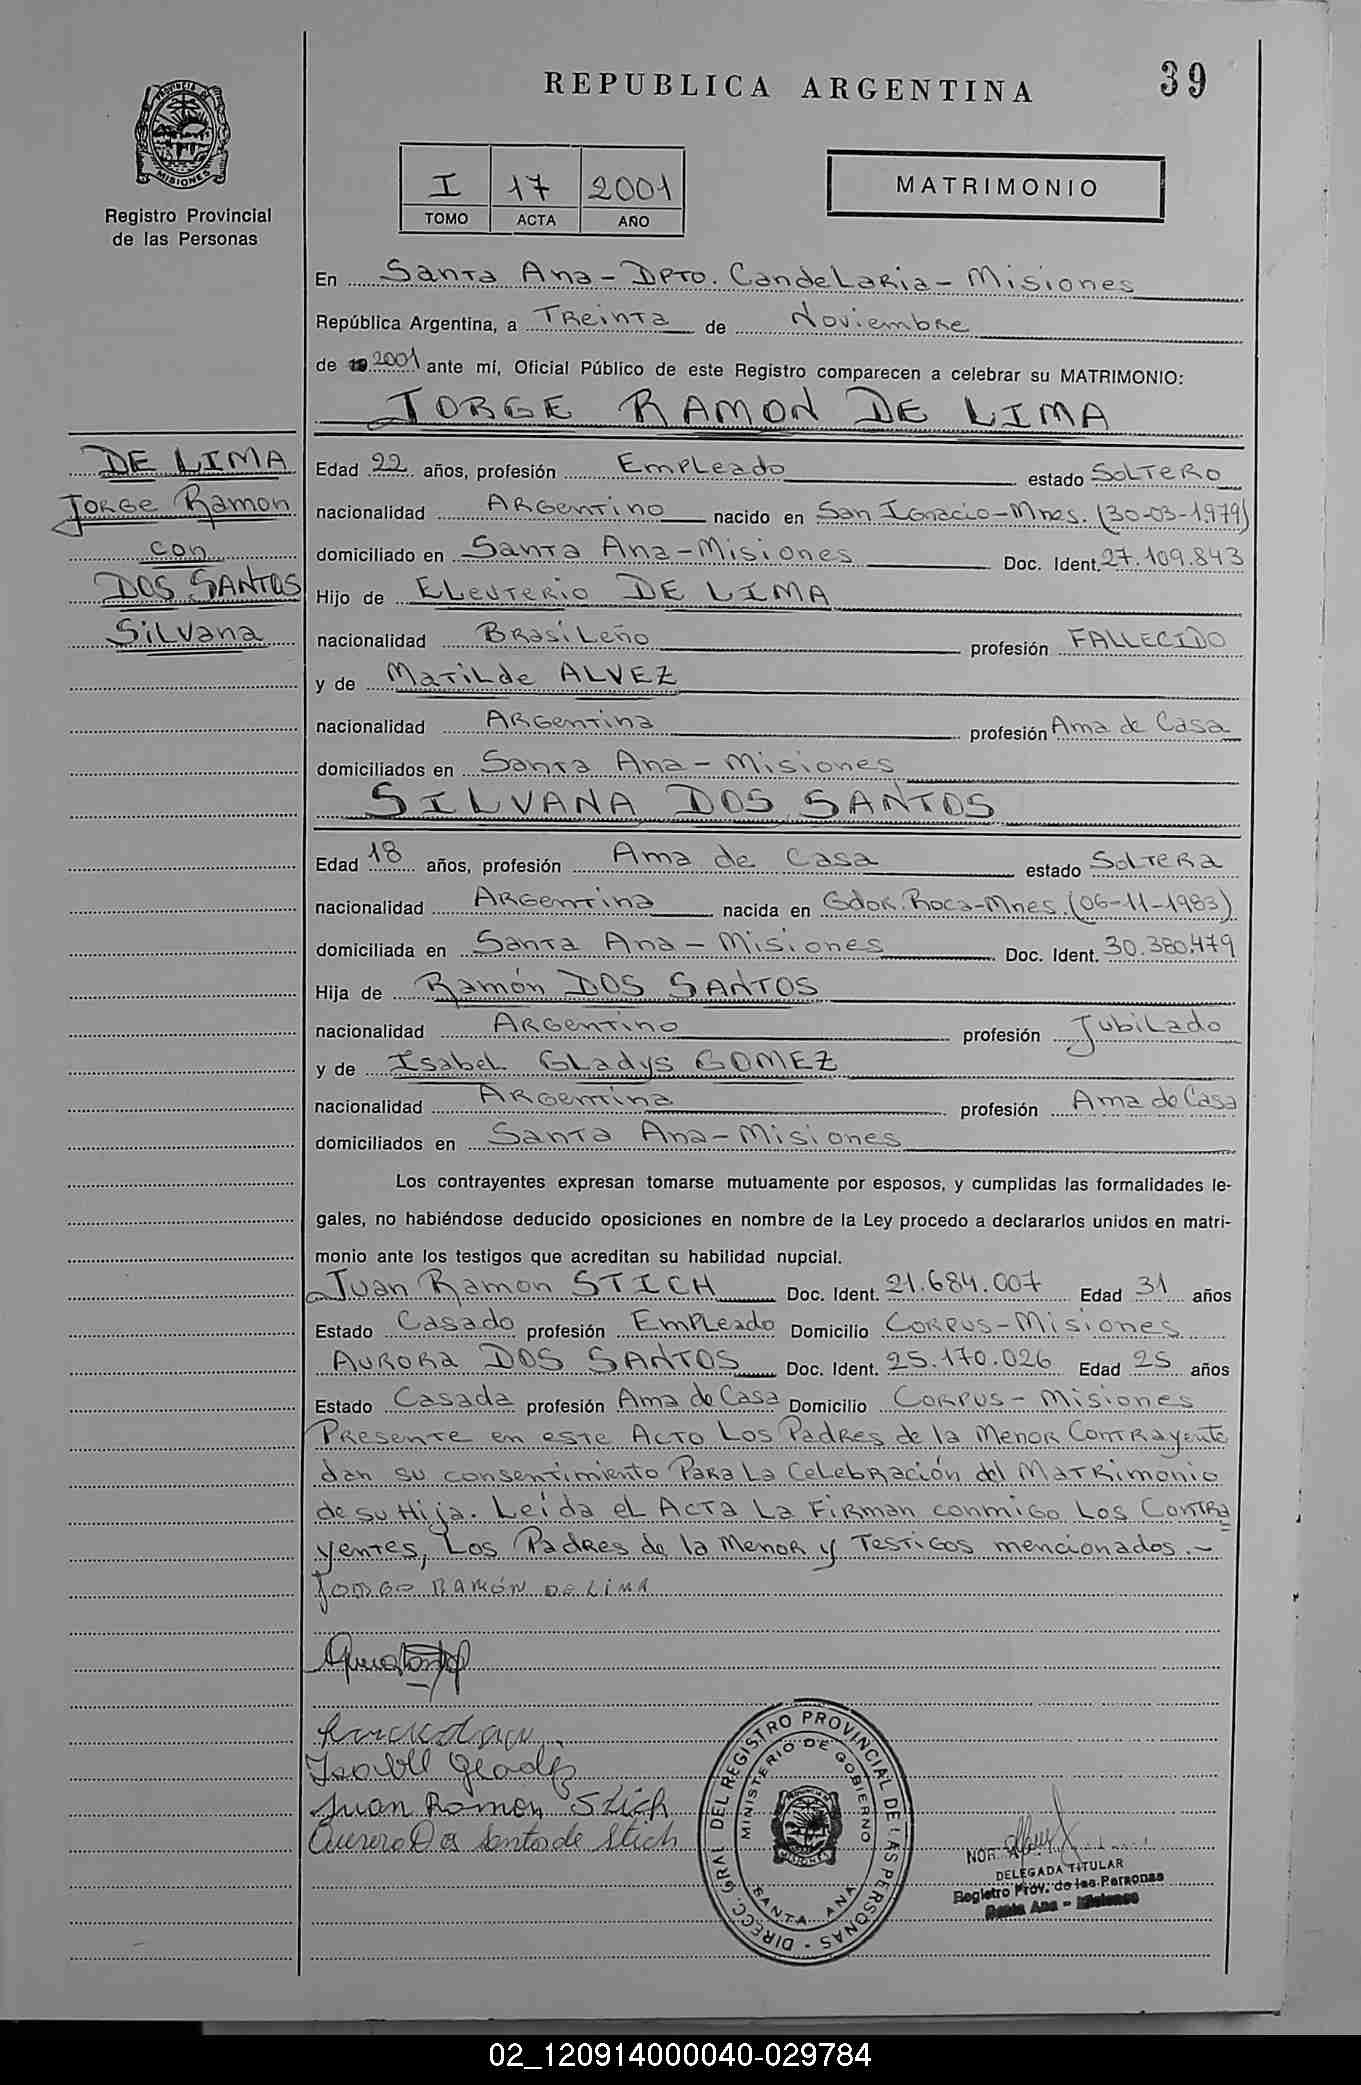 REPUBLICA ARGENTINA
39
PROVINCIA DE
MISIONES
Registro Provincial
de las Personas
I 17 2001
TOMO ACTA AÑO
MATRIMONIO
En Santa Ana - Dpto. Candelaria - Misiones
República Argentina, a Treinta de Noviembre
de 19 2001 ante mí, Oficial Público de este Registro comparecen a celebrar su MATRIMONIO:
JORGE RAMON DE LIMA
DE LIMA
Jorge Ramon
con
DOS SANTOS
Silvana
Edad 22 años, profesión Empleado estado Soltero
nacionalidad Argentino nacido en San Ignacio-Mnes. (30-03-1979)
domiciliado en Santa Ana - Misiones Doc. Ident. 27.109.843
Hijo de Eleuterio DE LIMA
nacionalidad Brasileño profesión FALLECIDO
y de Matilde ALVEZ
nacionalidad Argentina profesión Ama de Casa
domiciliados en Santa Ana - Misiones
SILVANA DOS SANTOS
Edad 18 años, profesión Ama de Casa estado Soltera
nacionalidad Argentina nacida en Gdor. Roca-Mnes. (06-11-1983)
domiciliada en Santa Ana - Misiones Doc. Ident. 30.380.479
Hija de Ramón DOS SANTOS
nacionalidad Argentino profesión Jubilado
y de Isabel Gladys GOMEZ
nacionalidad Argentina profesión Ama de Casa
domiciliados en Santa Ana - Misiones
Los contrayentes expresan tomarse mutuamente por esposos, y cumplidas las formalidades le-
gales, no habiéndose deducido oposiciones en nombre de la Ley procedo a declararlos unidos en matri-
monio ante los testigos que acreditan su habilidad nupcial.
Juan Ramon STICH Doc. Ident. 21.684.007 Edad 31 años
Estado Casado profesión Empleado Domicilio Corpus - Misiones
Aurora DOS SANTOS Doc. Ident. 25.170.026 Edad 25 años
Estado Casada profesión Ama de Casa Domicilio Corpus - Misiones
Presente en este Acto Los Padres de la Menor Contrayente
dan su consentimiento Para La Celebración del Matrimonio
de su Hija. Leída el Acta La Firman conmigo Los Contra
yentes, Los Padres de la Menor y Testigos mencionados.-
Jorge Ramón de Lima
Isabel Glady
Juan Ramon Stich
Aurora Dos Santos de Stich
DIRECC. GRAL. DEL REGISTRO PROVINCIAL DE LAS PERSONAS
MINISTERIO DE GOBIERNO
MISIONES
SANTA ANA
DELEGADA TITULAR
Registro Prov. de las Personas
Santa Ana - Misiones
02_120914000040-029784